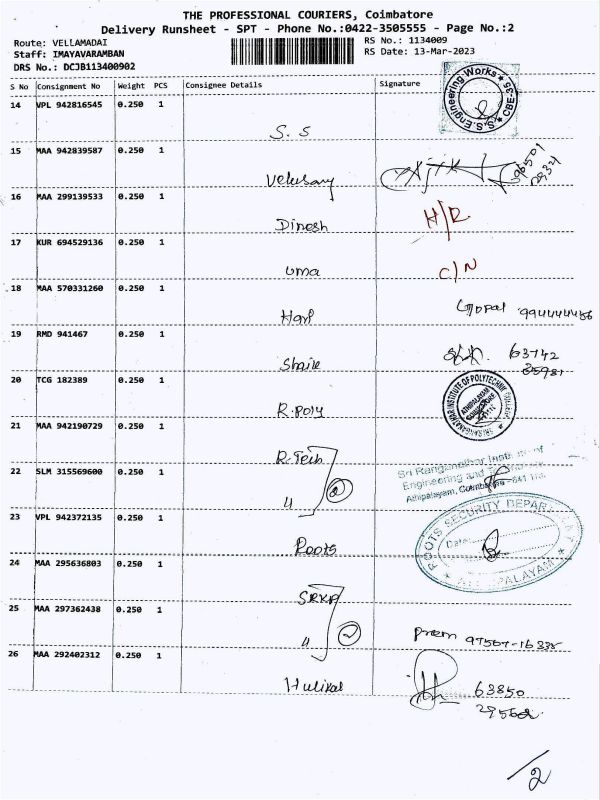 THE PROFESSIONAL COURIERS, Coimbatore
Delivery Runsheet - SPT - Phone No.:0422-3505555 - Page No.:2
Route: VELLAMADAI
RS No.: 1134009
Staff: IMAYAVARAMBAN
RS Date: 13-Mar-2023
DRS No.: DCJB113400902
S No Consignment No Weight PCS Consignee Details Signature
14 VPL 942816545 0.250 1
S.S
S.S. Engineering Works * CBE-35 *
15 MAA 942839587 0.250 1
Velusamy
16 MAA 299139533 0.250 1
Dinesh H/R
17 KUR 694529136 0.250 1
Uma C/N
18 MAA 570331260 0.250 1
Hari Gopal
19 RMD 941467 0.250 1
63742
20 TCG 182389 0.250 1
R.poly
21 MAA 942190729 0.250 1
R.Tech
22 SLM 315569600 0.250 1
Sri Ranganathar Institute of
Engineering and Technology
Athipalayam, Coimbatore - 641 110.
23 VPL 942372135 0.250 1
Roots
ROOTS SECURITY DEPARTMENT
Date:
ATHIPALAYAM
24 MAA 295636803 0.250 1
25 MAA 297362438 0.250 1
Prem
26 MAA 292402312 0.250 1
63850
2